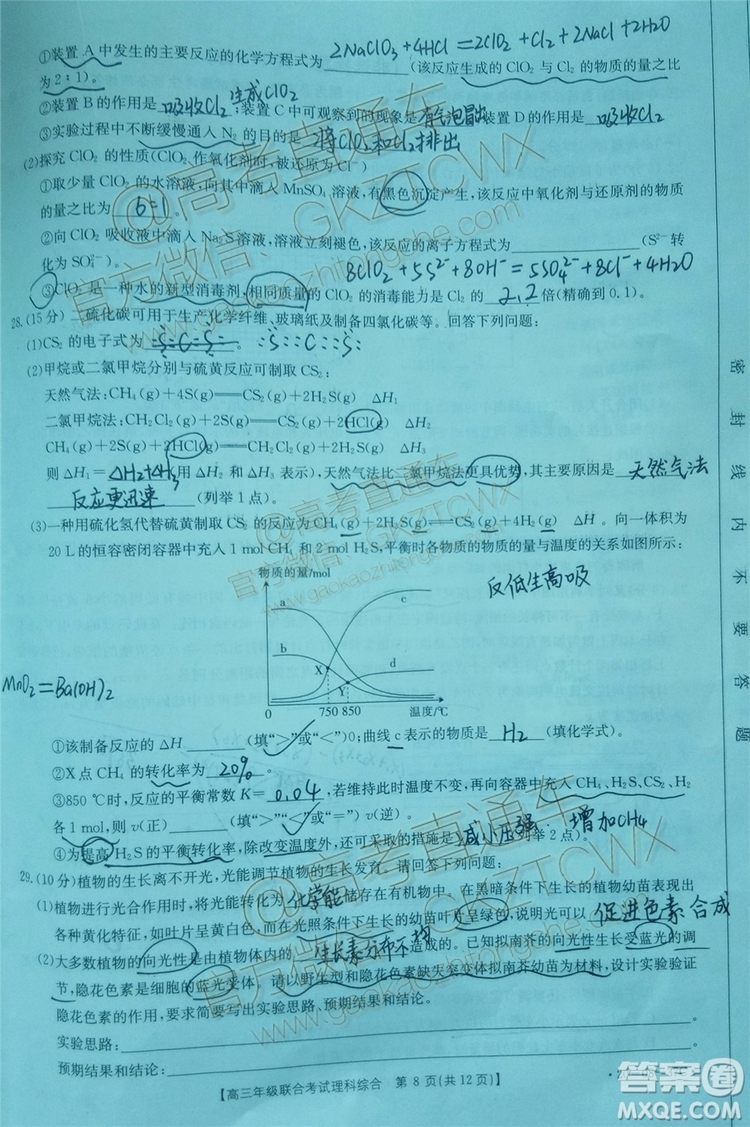 ①装置A中发生的主要反应的化学方程式为 2NaClO3+4HCl=2ClO2+Cl2+2NaCl+2H2O (该反应生成的ClO2与Cl2的物质的量之比
为2:1)。
②装置B的作用是 吸收Cl2 生成ClO2;装置C中可观察到的现象是 有气泡冒出 装置D的作用是 吸收Cl2
③实验过程中不断缓慢通入N2的目的是 将ClO2和Cl2排出
(2)探究ClO2的性质(ClO2作氧化剂时,被还原为Cl-)
①取少量ClO2的水溶液,向其中滴入MnSO4溶液,有黑色沉淀产生,该反应中氧化剂与还原剂的物质
的量之比为 6:1 。
②向ClO2吸收液中滴入Na2S溶液,溶液立刻褪色,该反应的离子方程式为 (S2-转
化为SO42-)。
8ClO2+5S2-+8OH-=5SO42-+8Cl-+4H2O
③ClO2是一种水的新型消毒剂,相同质量的ClO2的消毒能力是Cl2的 2.2 倍(精确到0.1)。
28.(15分)二硫化碳可用于生产化学纤维、玻璃纸及制备四氯化碳等。回答下列问题:
(1)CS2的电子式为 。 :S::C::S:
(2)甲烷或二氯甲烷分别与硫黄反应可制取CS2:
天然气法:CH4(g)+4S(g)══CS2(g)+2H2S(g) ΔH1
二氯甲烷法:CH2Cl2(g)+2S(g)══CS2(g)+2HCl(g) ΔH2
CH4(g)+2S(g)+2HCl(g)══CH2Cl2(g)+2H2S(g) ΔH3
则ΔH1= ΔH2+ΔH3 用ΔH2和ΔH3表示),天然气法比二氯甲烷法更具优势,其主要原因是 天然气法
反应更迅速 (列举1点)。
(3)一种用硫化氢代替硫黄制取CS2的反应为CH4(g)+2H2S(g)══CS2(g)+4H2(g) ΔH。向一体积为
20L的恒容密闭容器中充入1 mol CH4和2 mol H2S,平衡时各物质的物质的量与温度的关系如图所示:
物质的量/mol
反低生高吸
a
c
b
d
X
Y
MnO2=Ba(OH)2
0 750 850 温度/℃
①该制备反应的ΔH (填“>”或“<”)0;曲线c表示的物质是 H2 (填化学式)。
②X点CH4的转化率为 20% 。
③850℃时,反应的平衡常数K= 0.04 ,若维持此时温度不变,再向容器中充入CH4、H2S、CS2、H2
各1 mol,则v(正) (填“>”“<”或“=”)v(逆)。
④为提高H2S的平衡转化率,除改变温度外,还可采取的措施是 减小压强 · 增加CH4 (列举2点)。
29.(10分)植物的生长离不开光,光能调节植物的生长发育。请回答下列问题:
(1)植物进行光合作用时,将光能转化为 化学能 储存在有机物中。在黑暗条件下生长的植物幼苗表现出
各种黄化特征,如叶片呈黄白色,而在光照条件下生长的幼苗叶片呈绿色,说明光可以 促进色素合成
(2)大多数植物的向光性是由植物体内的 生长素分布不均 造成的。已知拟南芥的向光性生长受蓝光的调
节,隐花色素是细胞的蓝光受体。请以野生型和隐花色素缺失突变体拟南芥幼苗为材料,设计实验验证
隐花色素的作用,要求简要写出实验思路、预期结果和结论。
实验思路:
预期结果和结论:
【高三年级联合考试理科综合 第8页(共12页)】
密封线内不要答题
@高考直通车
官方微信:GKZTCWX
www.gaokaozhitongche.com
答案圈
MXQE.COM